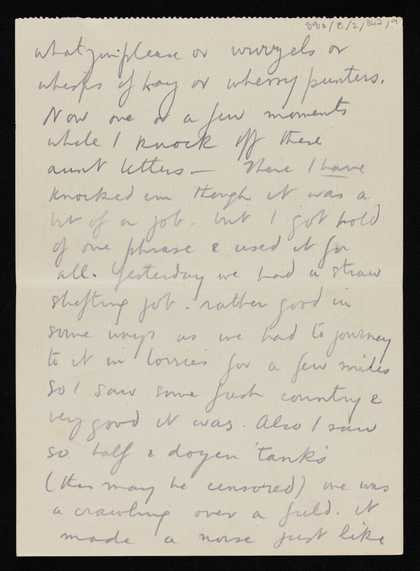 what you please or wurzels or
wheps of hay or wherry punters.
Now one or a few moments
while I knock off these
aunt letters — There I have
knocked em though it was a
bit of a job. but I got hold
of one phrase & used it for
all. Yesterday we had a straw
shifting job. rather good in
some ways as we had to journey
to it in lorries for a few miles
so I saw some fresh country &
very good it was. Also I saw
so half a dozen 'tanks'
(this may be censored) one was
a crawling over a field. it
made a noise just like